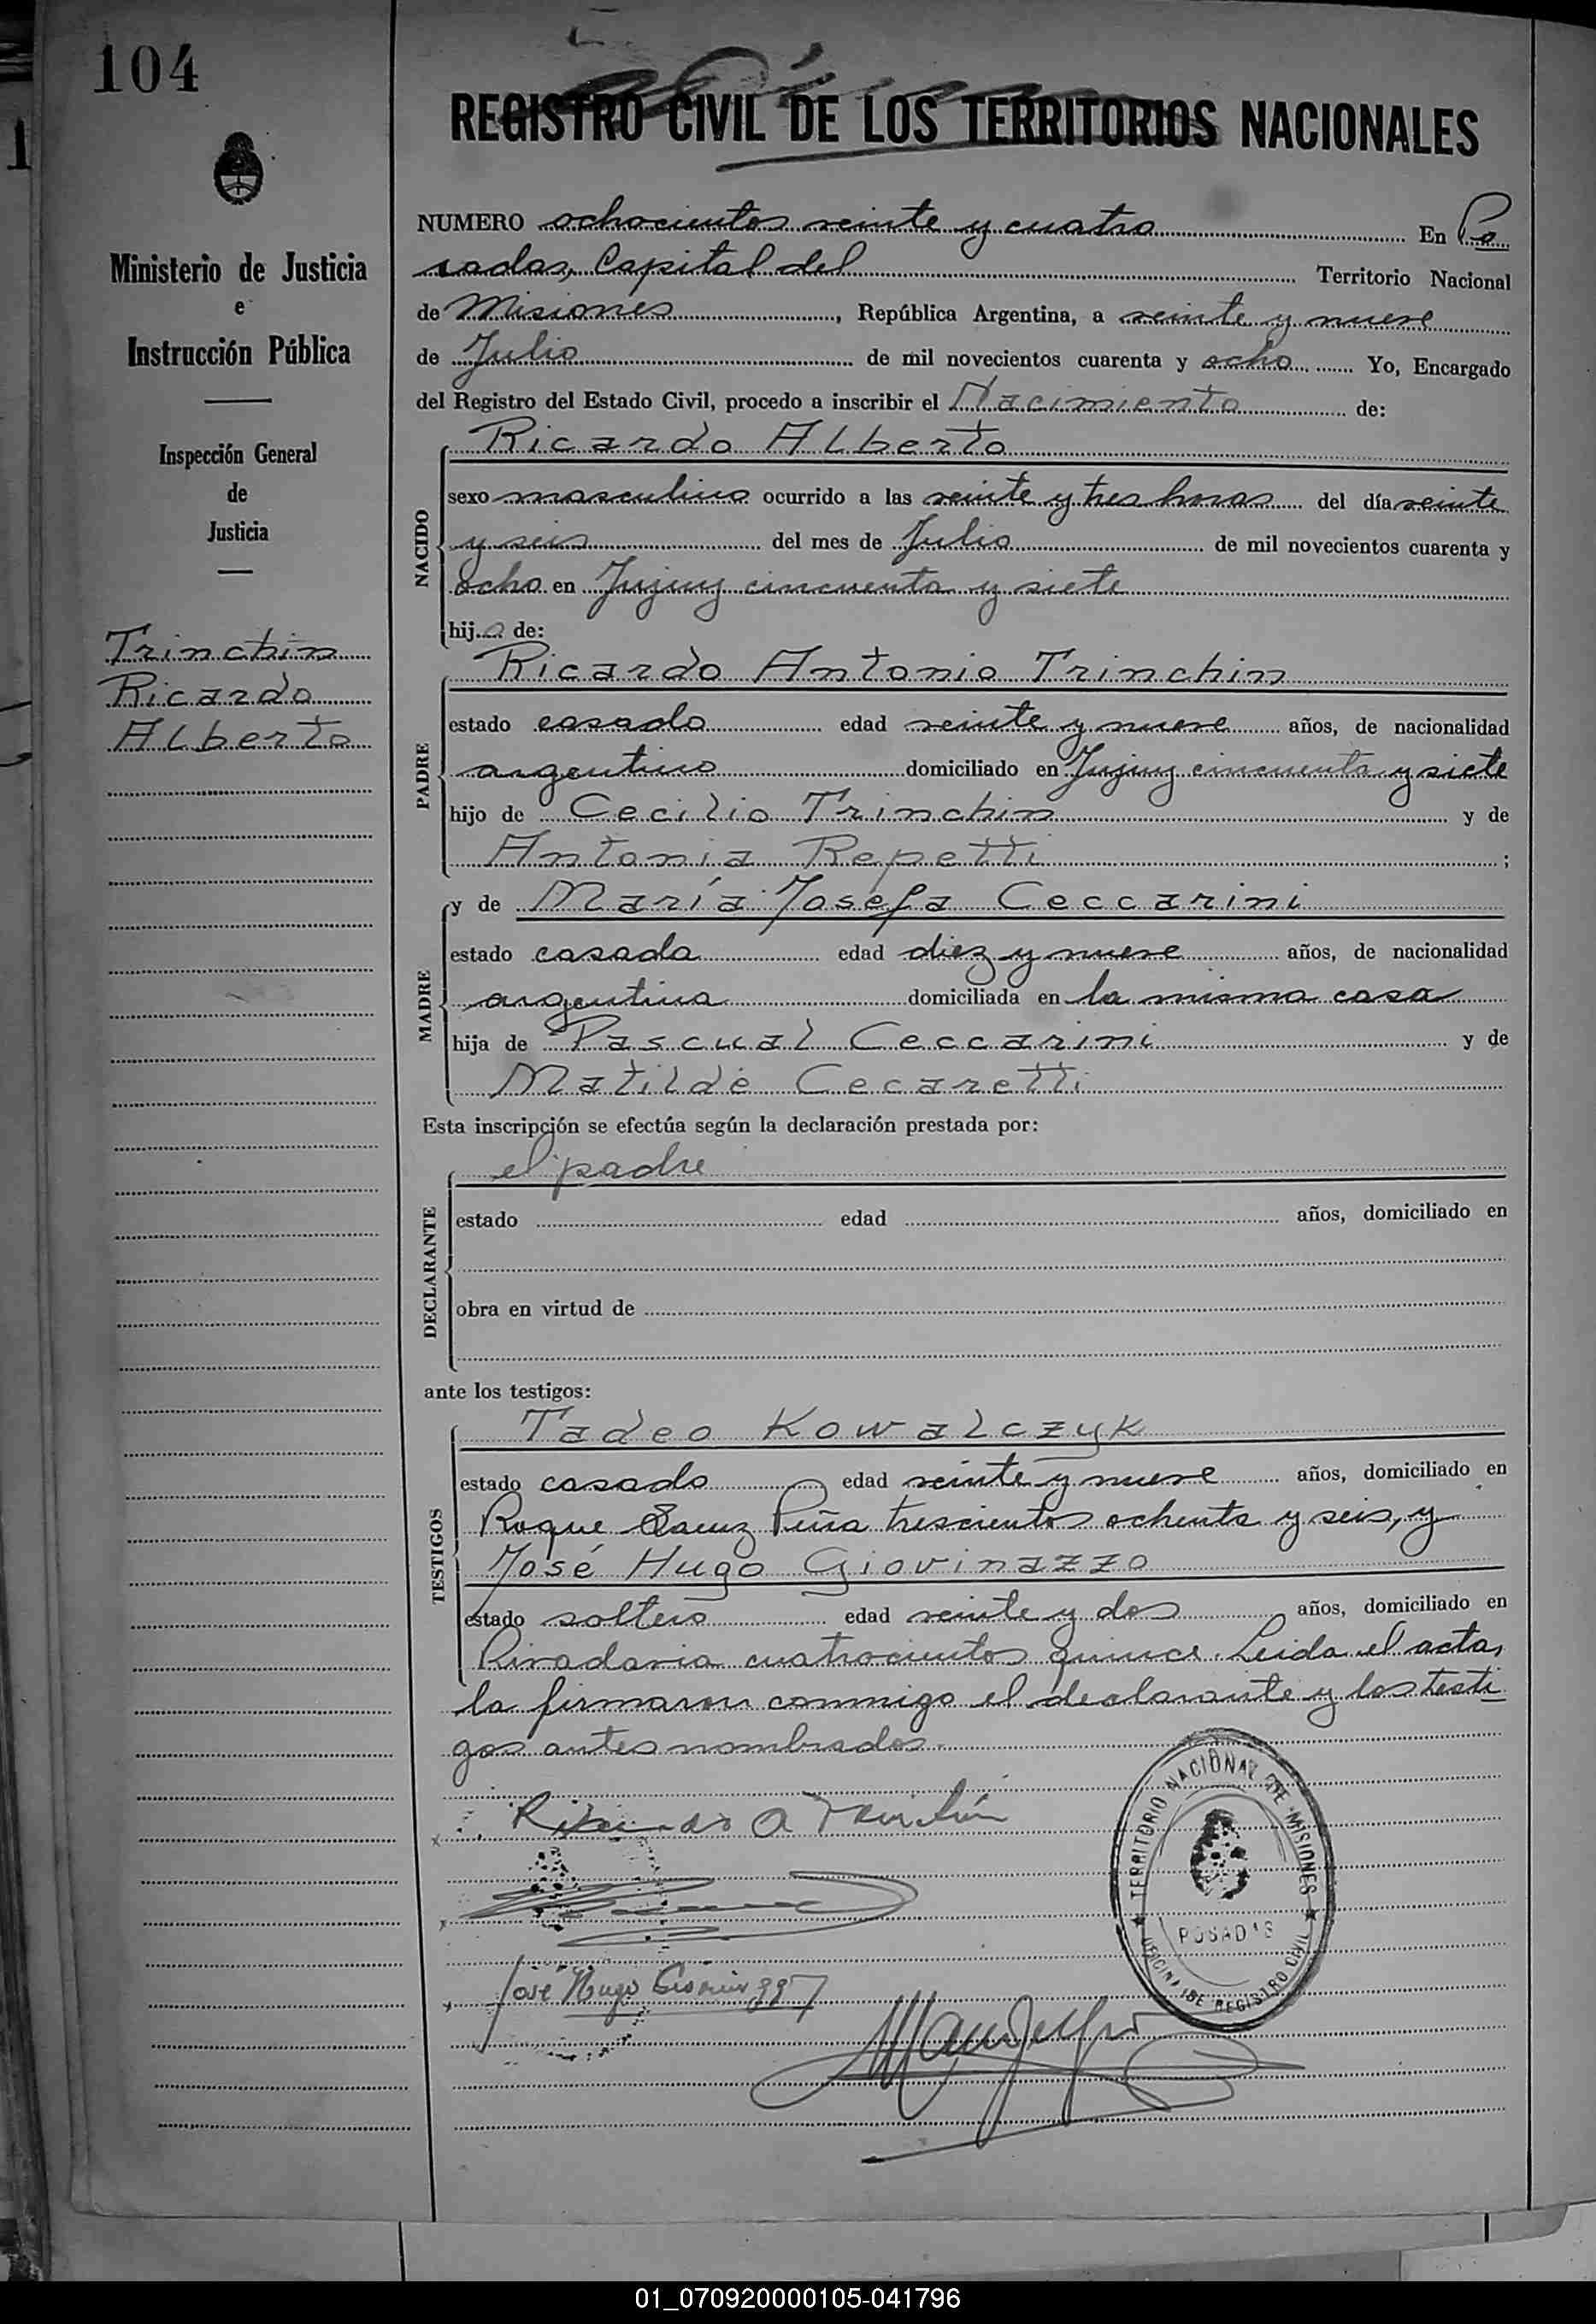 104
REGISTRO CIVIL DE LOS TERRITORIOS NACIONALES
Ministerio de Justicia
e
Instrucción Pública
Inspección General
de
Justicia
Trinchin
Ricardo
Alberto
NUMERO ochocientos veinte y cuatro En Po
sadas, Capital del Territorio Nacional
de Misiones, República Argentina, a veinte y nueve
de Julio de mil novecientos cuarenta y ocho Yo, Encargado
del Registro del Estado Civil, procedo a inscribir el Nacimiento de:
NACIDO
Ricardo Alberto
sexo masculino ocurrido a las veinte y tres horas del día veinte
y seis del mes de Julio de mil novecientos cuarenta y
ocho en Jujuy cincuenta y siete
hijo de:
PADRE
Ricardo Antonio Trinchin
estado casado edad veinte y nueve años, de nacionalidad
argentino domiciliado en Jujuy cincuenta y siete
hijo de Cecilio Trinchin y de
Antonia Repetti ;
MADRE
y de María Josefa Ceccarini
estado casada edad diez y nueve años, de nacionalidad
argentina domiciliada en la misma casa
hija de Pascual Ceccarini y de
Matilde Cecaretti
Esta inscripción se efectúa según la declaración prestada por:
DECLARANTE
el padre
estado edad años, domiciliado en
obra en virtud de
ante los testigos:
TESTIGOS
Tadeo Kowalczyk
estado casado edad veinte y nueve años, domiciliado en
Roque Saenz Peña trescientos ochenta y seis, y
José Hugo Giovinazzo
estado soltero edad veinte y dos años, domiciliado en
Rivadavia cuatrocientos quince. Leida el acta,
la firmaron conmigo el declarante y los testi
gos antes nombrados.
Ricardo A Trinchin
José Hugo Giovinazzo
TERRITORIO NACIONAL DE MISIONES
POSADAS
OFICINA DE REGISTRO CIVIL
01_070920000105-041796